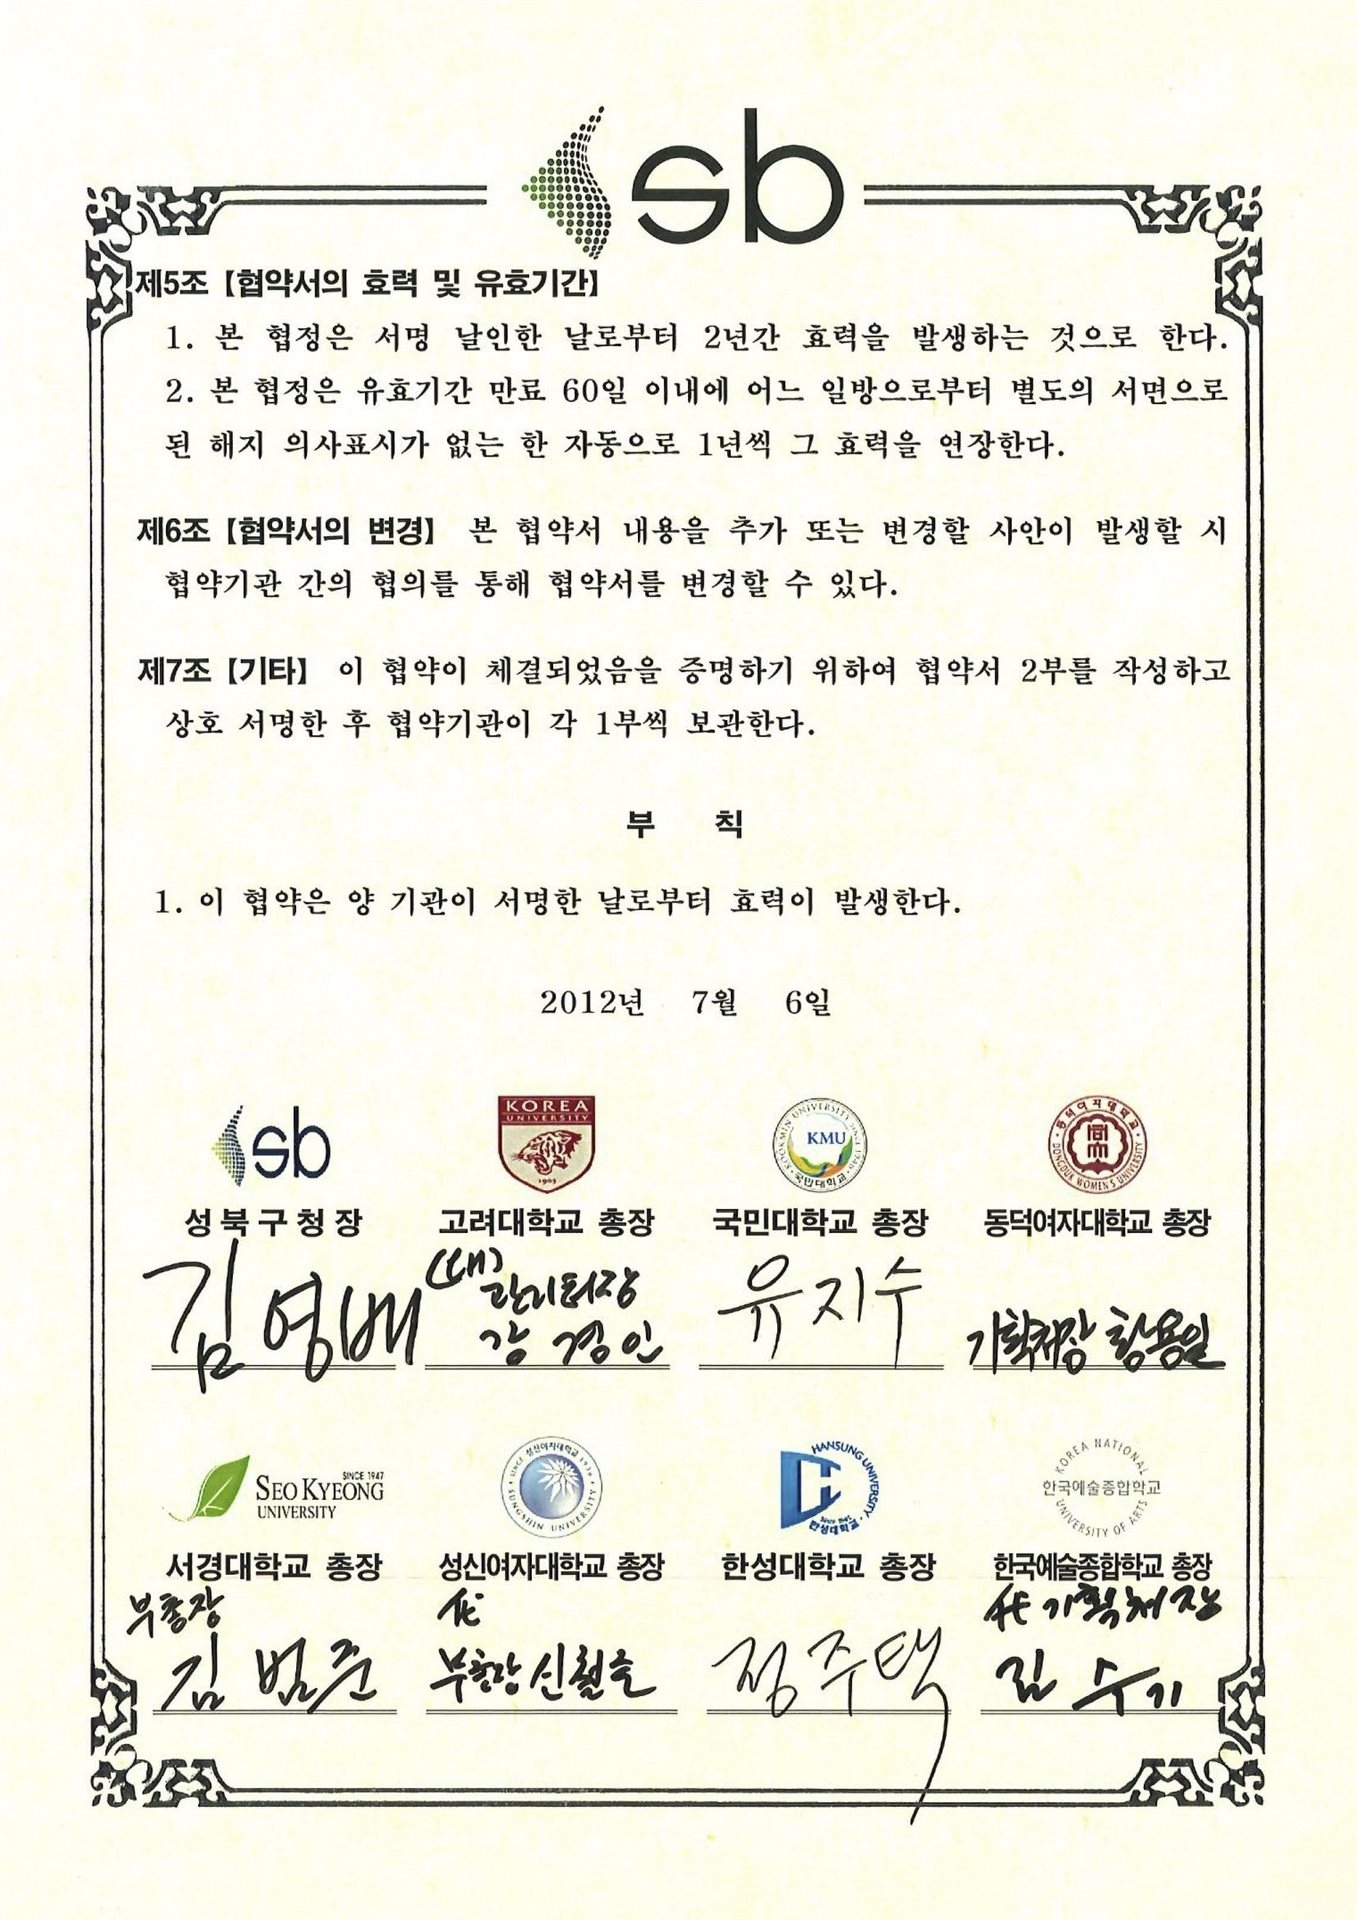 sb
제5조【협약서의 효력 및 유효기간】
1. 본 협정은 서명 날인한 날로부터 2년간 효력을 발생하는 것으로 한다.
2. 본 협정은 유효기간 만료 60일 이내에 어느 일방으로부터 별도의 서면으로
된 해지 의사표시가 없는 한 자동으로 1년씩 그 효력을 연장한다.
제6조【협약서의 변경】 본 협약서 내용을 추가 또는 변경할 사안이 발생할 시
협약기관 간의 협의를 통해 협약서를 변경할 수 있다.
제7조【기타】 이 협약이 체결되었음을 증명하기 위하여 협약서 2부를 작성하고
상호 서명한 후 협약기관이 각 1부씩 보관한다.
부 칙
1. 이 협약은 양 기관이 서명한 날로부터 효력이 발생한다.
2012년 7월 6일
sb
성북구청장
김영배
KOREA
UNIVERSITY
1905
고려대학교 총장
(대)관리처장
강경인
KOOKMIN UNIVERSITY SINCE 1946
KMU
국민대학교
국민대학교 총장
유지수
동덕여자대학교
DONGDUK WOMEN'S UNIVERSITY
동덕여자대학교 총장
기획처장 황용일
SINCE 1947
SEO KYEONG
UNIVERSITY
서경대학교 총장
부총장
김범준
성신여자대학교
SINCE 1936
SUNGSHIN UNIVERSITY
성신여자대학교 총장
代
부총장 신철순
HANSUNG UNIVERSITY
Since 1945
한성대학교
한성대학교 총장
정주택
KOREA NATIONAL
한국예술종합학교
UNIVERSITY OF ARTS
한국예술종합학교 총장
代 기획처장
김수기